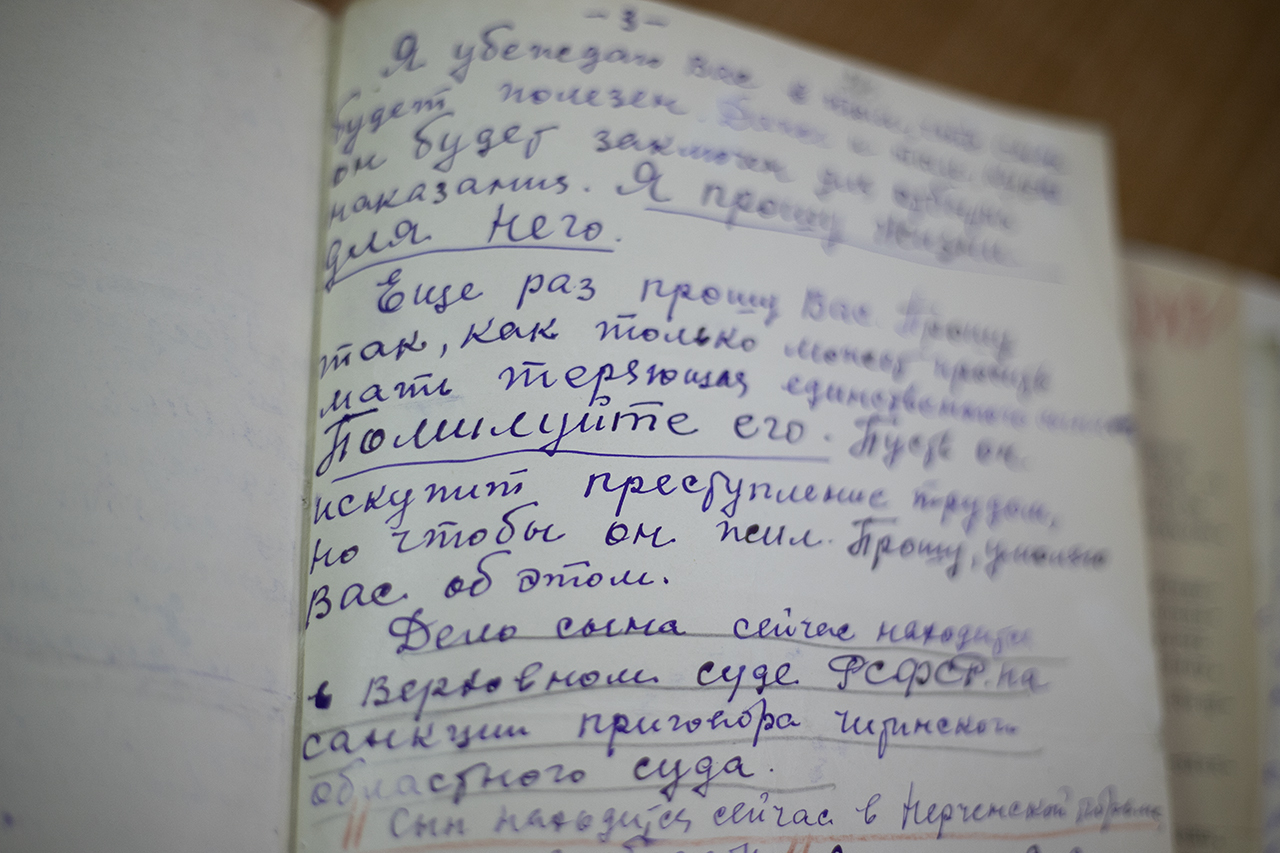 - 3 -
Я убеждаю Вас в том, что он
будет полезен. Даже и тогда, когда
он будет заключен для отбытия
наказания. Я прошу жизни
для него.
Еще раз прошу Вас. Прошу
так, как только может просить
мать теряющая единственного
Помилуйте его. Пусть он
искупит преступление трудом,
но чтобы он жил. Прошу, умоляю
Вас об этом.
Дело сына сейчас находится
в Верховном суде РСФСР на
санкции приговора Читинского
областного суда.
Сын находится сейчас в Нерченской